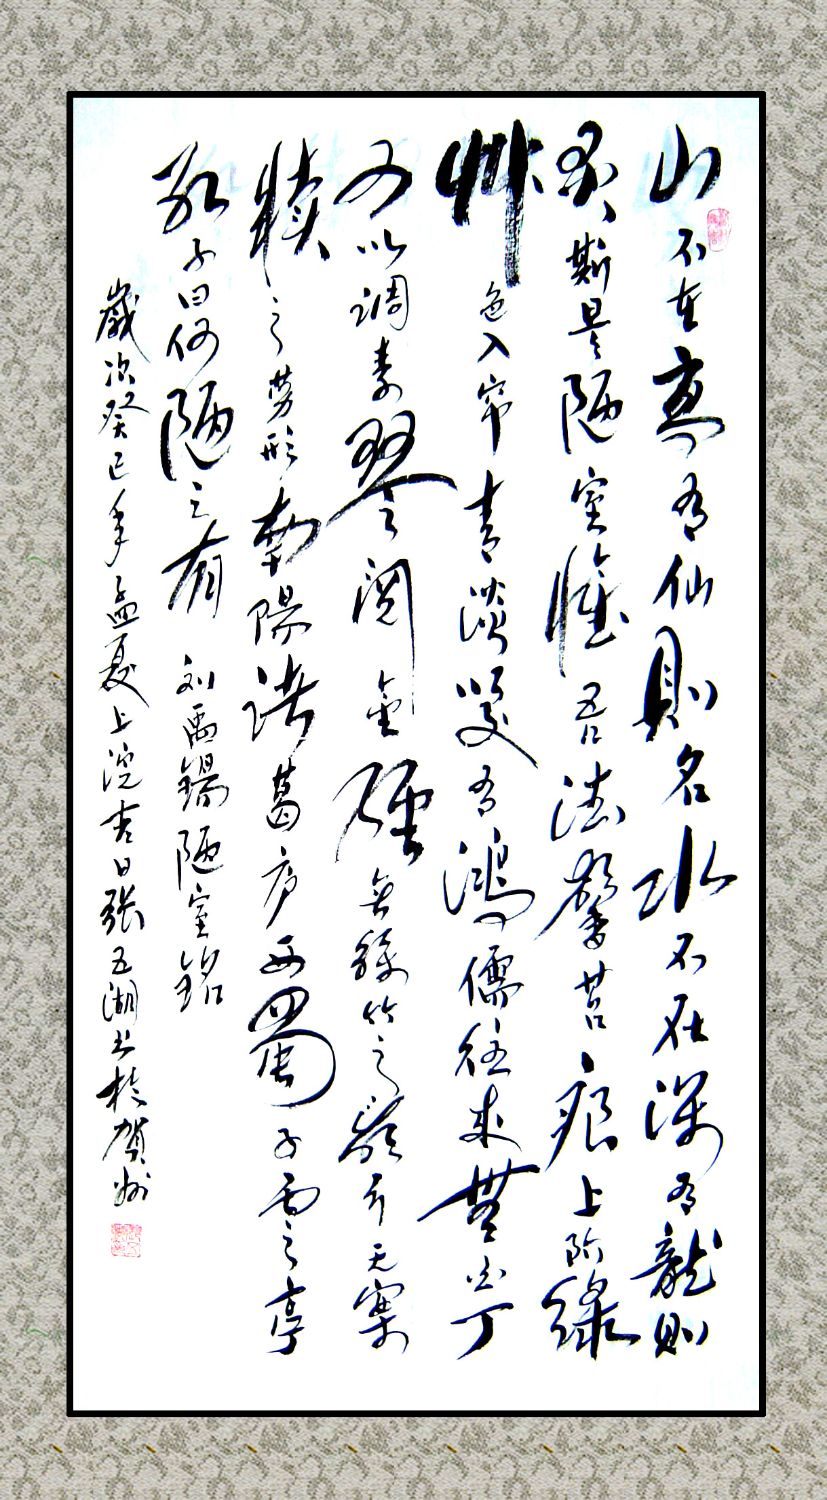 山不在高有仙則名水不在深有龍則
灵斯是陋室惟吾德馨苔痕上阶綠
艸色入帘青談笑有鴻儒往來無白丁
可以調素琴閱金經無絲竹之亂耳无案
牘之勞形南陽諸葛庐西蜀子雲之亭
孔子曰何陋之有 刘禹錫陋室銘
歲次癸巳年孟夏上浣吉日張五湖书於贺州